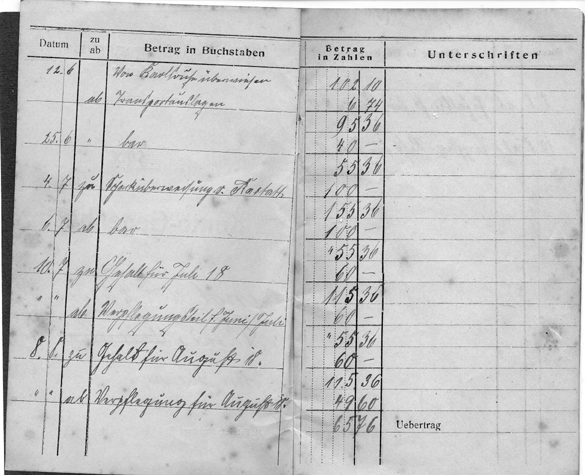 Datum zu ab Betrag in Buchstaben Betrag in Zahlen Unterschriften
12. 6 Von Karlsruhe überwiesen 102 10
ab Transportauslagen 6 74
95 36
25. 6 " bar 40 —
55 36
4. 7 zu Schecküberweisung v. Rastatt 100 —
155 36
6. 7 ab bar 100 —
" 55 36
10. 7 zu Gehalt für Juli 18 60 —
115 36
" " ab Verpflegungsteil f. Juni/Juli 60 —
" 55 36
8. 8. zu Gehalt für August 18. 60 —
115 36
" " ab Verpflegung für August 18. 49 60
65 76 Uebertrag